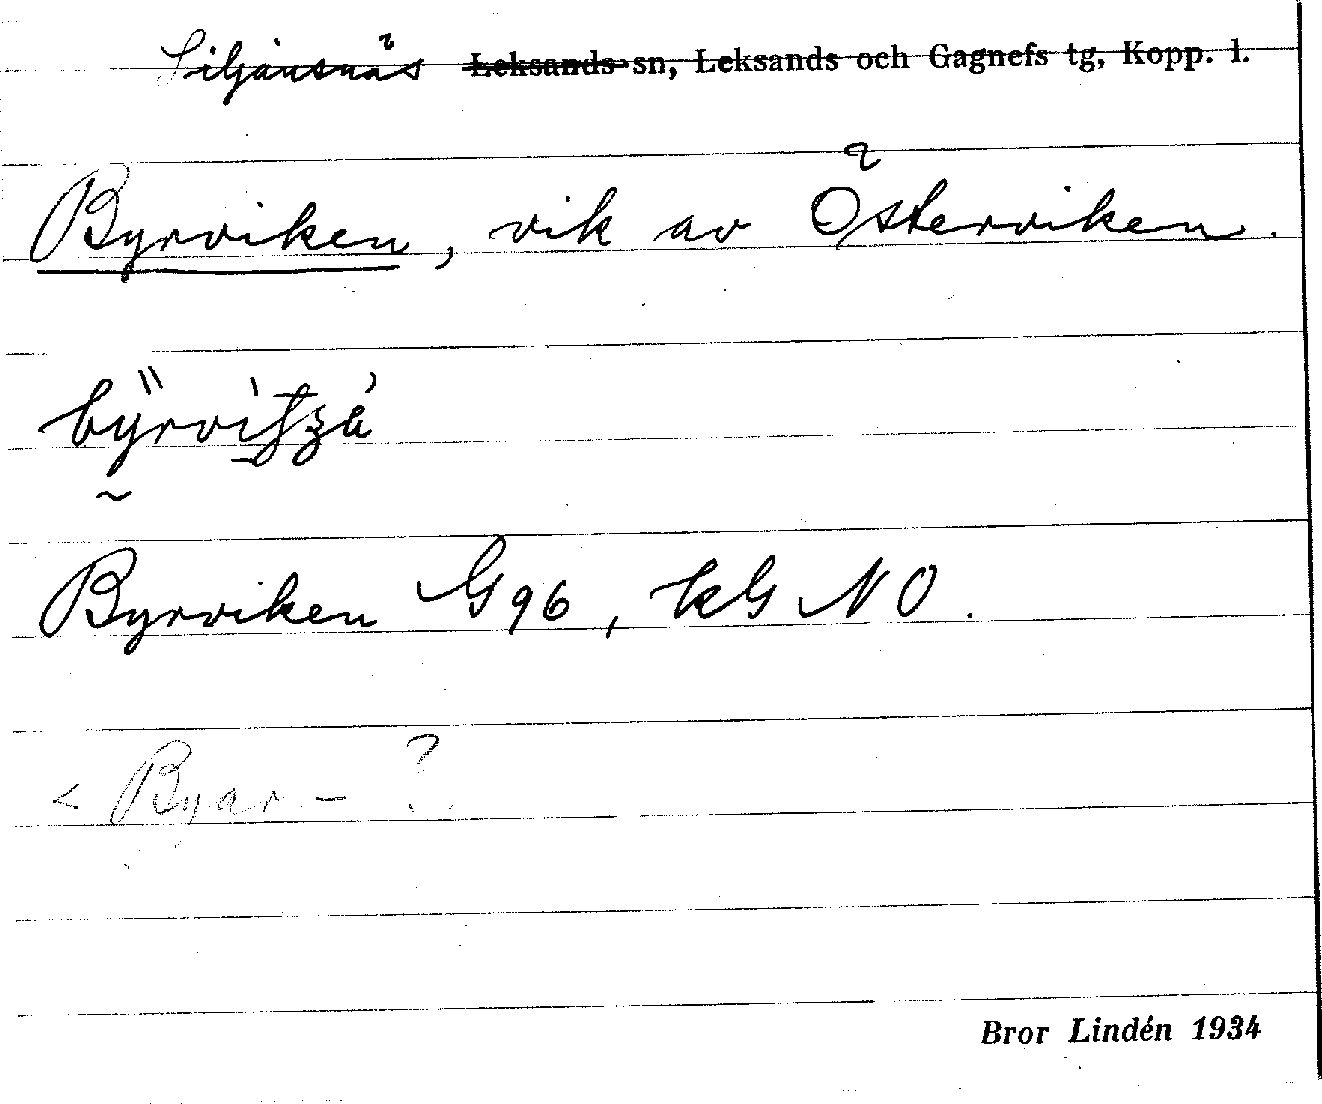 Siljansnäs Leksands sn, Leksands och Gagnefs tg, Kopp. l.
Byrviken, vik av Österviken.
Byrviken G96, kG NO.
< Byar - ?
Bror Lindén 1934